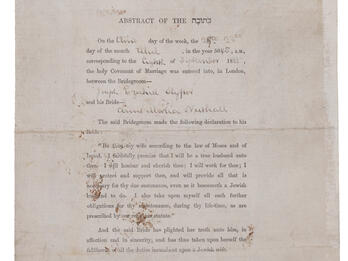 ABSTRACT OF THE כתובה
On the day of the week, the
day of the month Ellul, in the year 56, A.M.,
corresponding to the Eighth of September 18,
the holy Covenant of Marriage was entered into, in London,
between the Bridegroom—
Joseph Ezekiel
and his Bride—
Annie Marshall
The said Bridegroom made the following declaration to his
Bride:
"Be thou my wife according to the law of Moses and of
Israel. I faithfully promise that I will be a true husband unto
thee. I will honour and cherish thee; I will work for thee; I
will protect and support thee, and will provide all that is
necessary for thy due sustenance, even as it beseemeth a Jewish
husband to do. I also take upon myself all such further
obligations for thy maintenance, during thy life-time, as are
prescribed by our statute."
And the said Bride has plighted her troth unto him, in
affection and in sincerity, and has thus taken upon herself the
fulfilment of all the duties incumbent upon a Jewish wife.